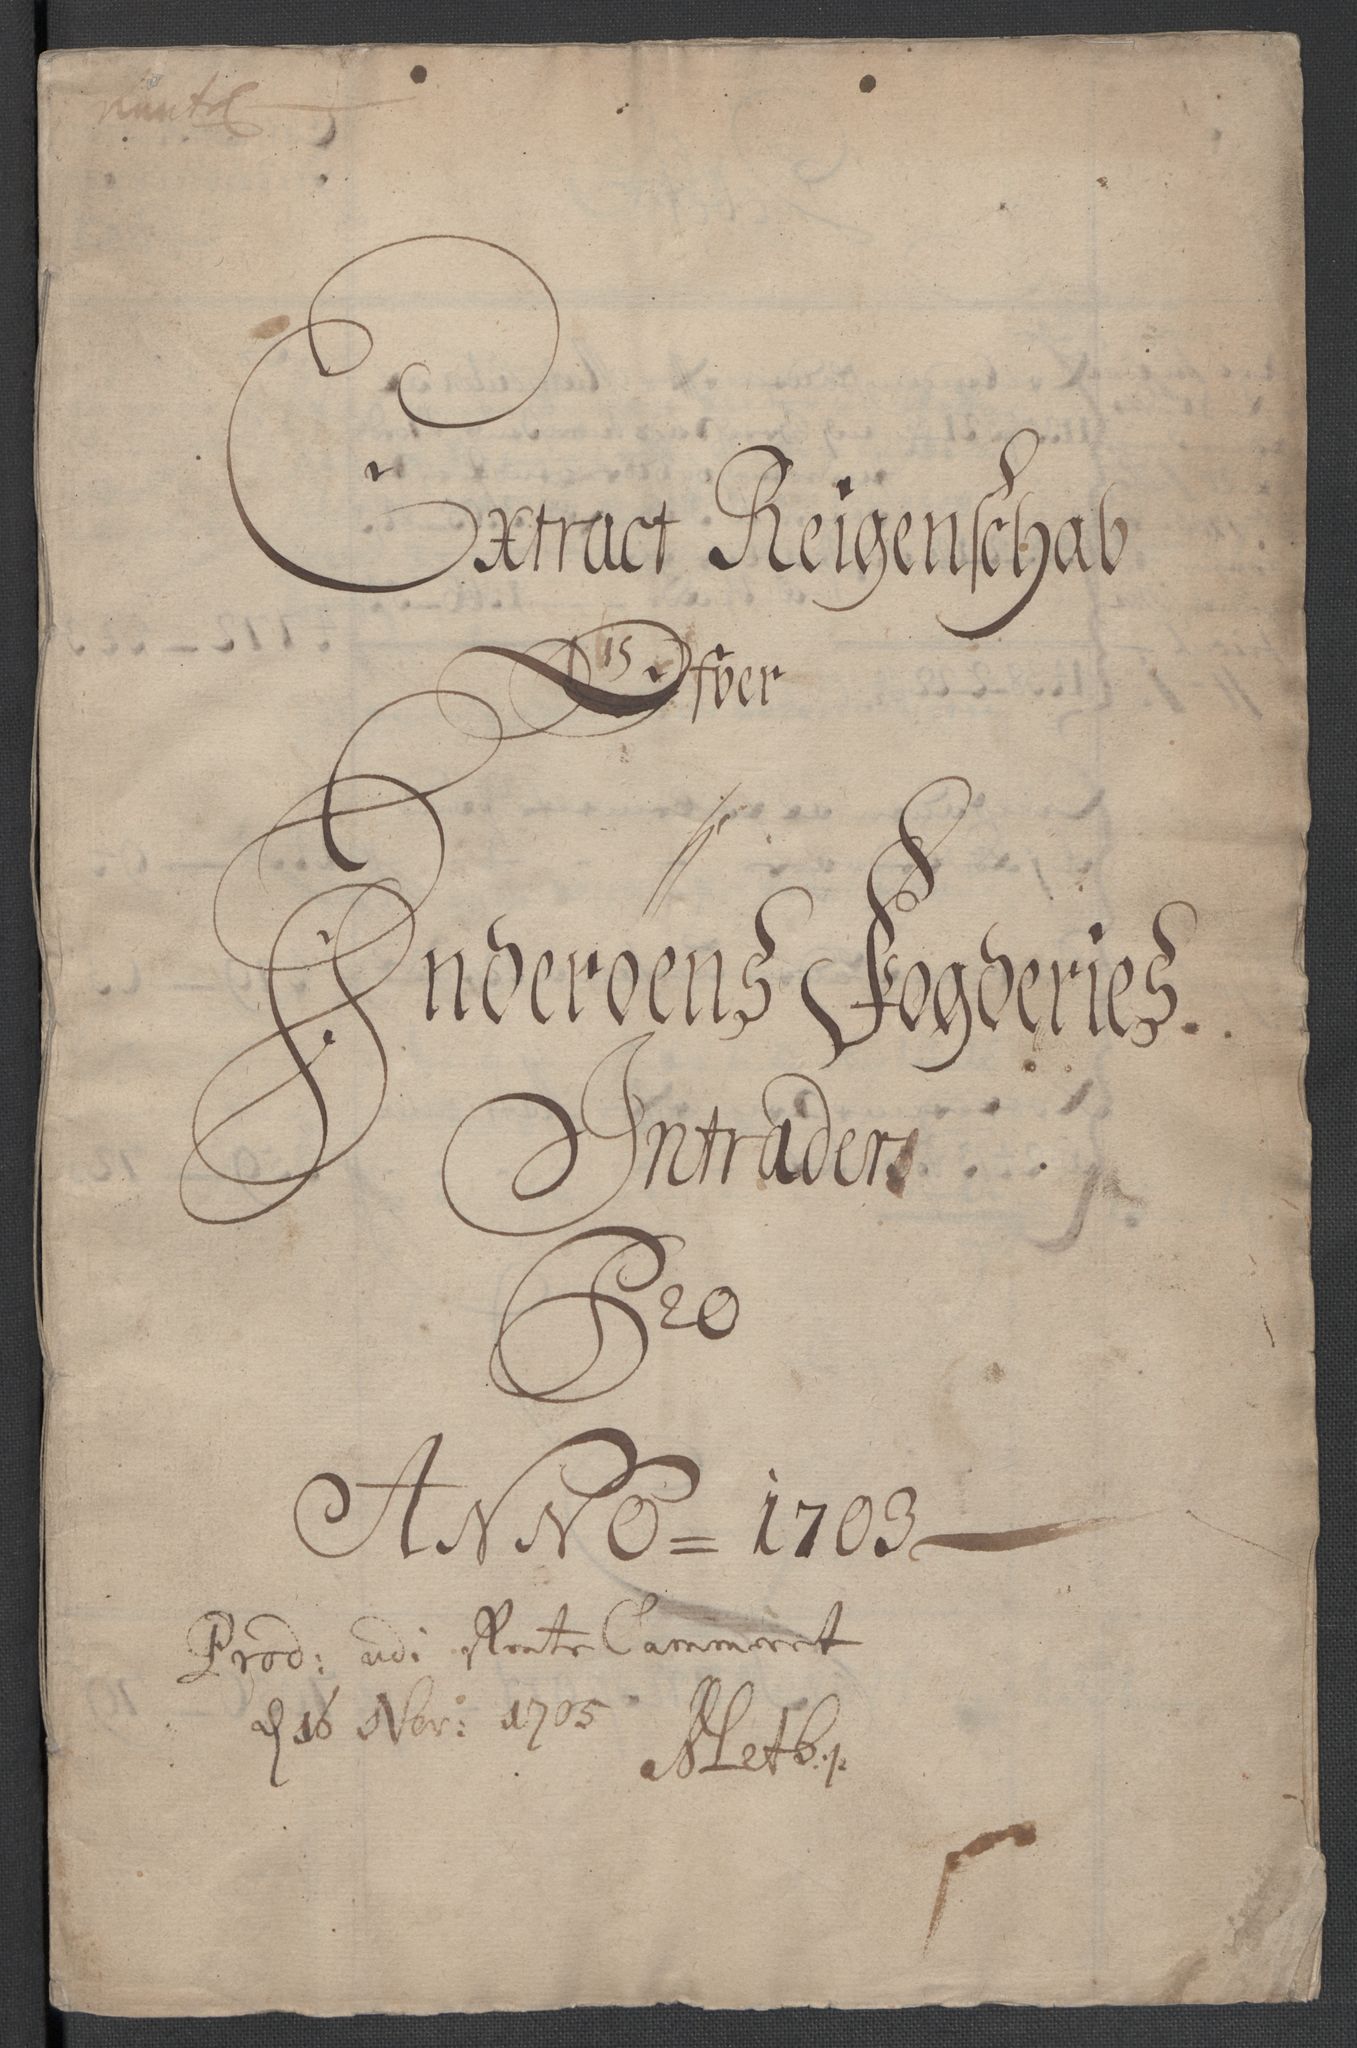 Extract Reigenschab
15
Ofver
Inderoens Fogderies
Intrader
Pro
ANNO = 1703
Prod: udi Rente Cammeret
d 16 Nbr: 1705